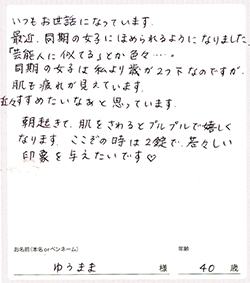 いつもお世話になっています.
最近、同期の女子にほめられるようになりました.
「芸能人に似てる」とか色々….
同期の女子は私より歳が2つ下なのですが、
肌も疲れが見えています.
すすめたいなぁと思っています.
朝起きて、肌をさわるとプルプルで嬉しく
なります。ここぞの時は2錠で、若々しい
印象を与えたいです♡
お名前(本名orペンネーム)
年齢
ゆうまま 様 40 歳